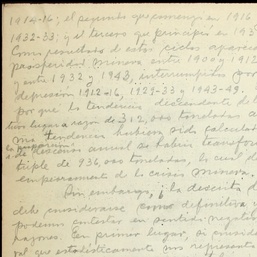 1914-16; el segundo que comenzó en 1916
1932-33; y el tercero que principió en 193
Como resultado de estos ciclos aparece
prosperidad minera entre 1900 y 1912
y entre 1932 y 1943, interrumpidos por
depresión 1912-16, 1929-33 y 1943-49.
Por que la tendencia descendente de
tivo lugar a razón de 312, oos toneladas a
tendencia hubiera sido calculada
de descenso anual se habría transform
triple de 936, oos toneladas, lo cual
empeoramiento de la crisis minera.
Sin embargo, ¿ la descrita
debe considerarse como definitiva y
podemos contestar en sentido negativo
razones. En primer lugar, si consid
ral que estadísticamente nos represent